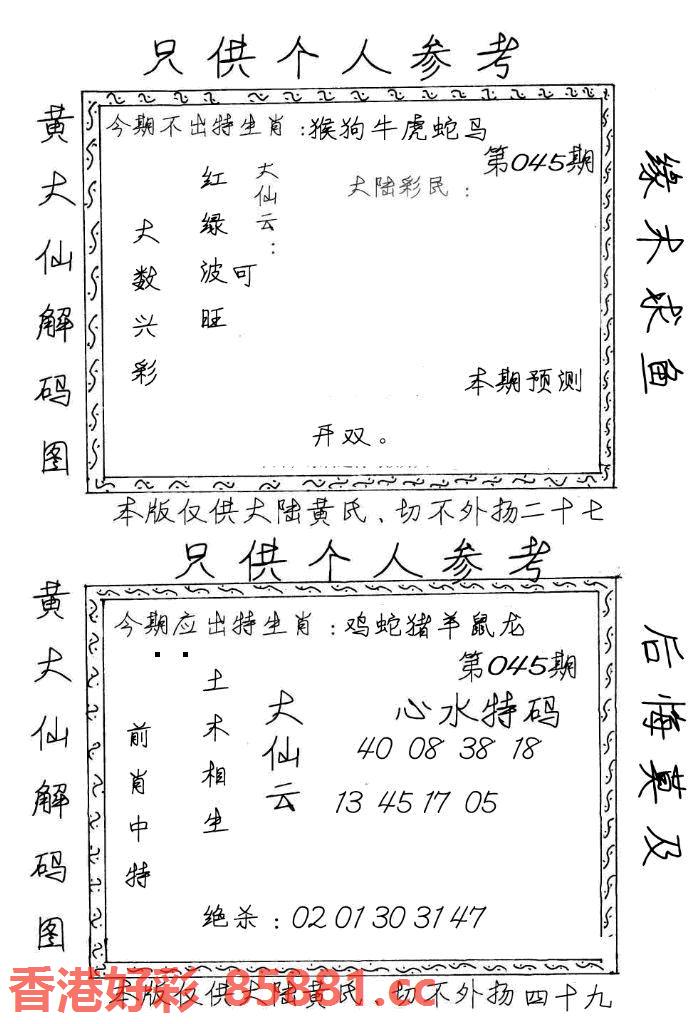 只供个人参考
黄大仙解码图
今期不出特生肖:猴狗牛虎蛇马
第045期
大陆彩民:
大仙云:
红绿波可旺
大数兴彩
本期预测
开双。
缘木求鱼
本版仅供大陆黄氏、切不外扬二十七
只供个人参考
黄大仙解码图
今期应出特生肖:鸡蛇猪羊鼠龙
第045期
心水特码
40 08 38 18
13 45 17 05
大仙云
土木相生
前肖中特
绝杀:02 01 30 31 47
后悔莫及
本版仅供大陆黄氏、切不外扬四十九
香港好彩 85881.cc